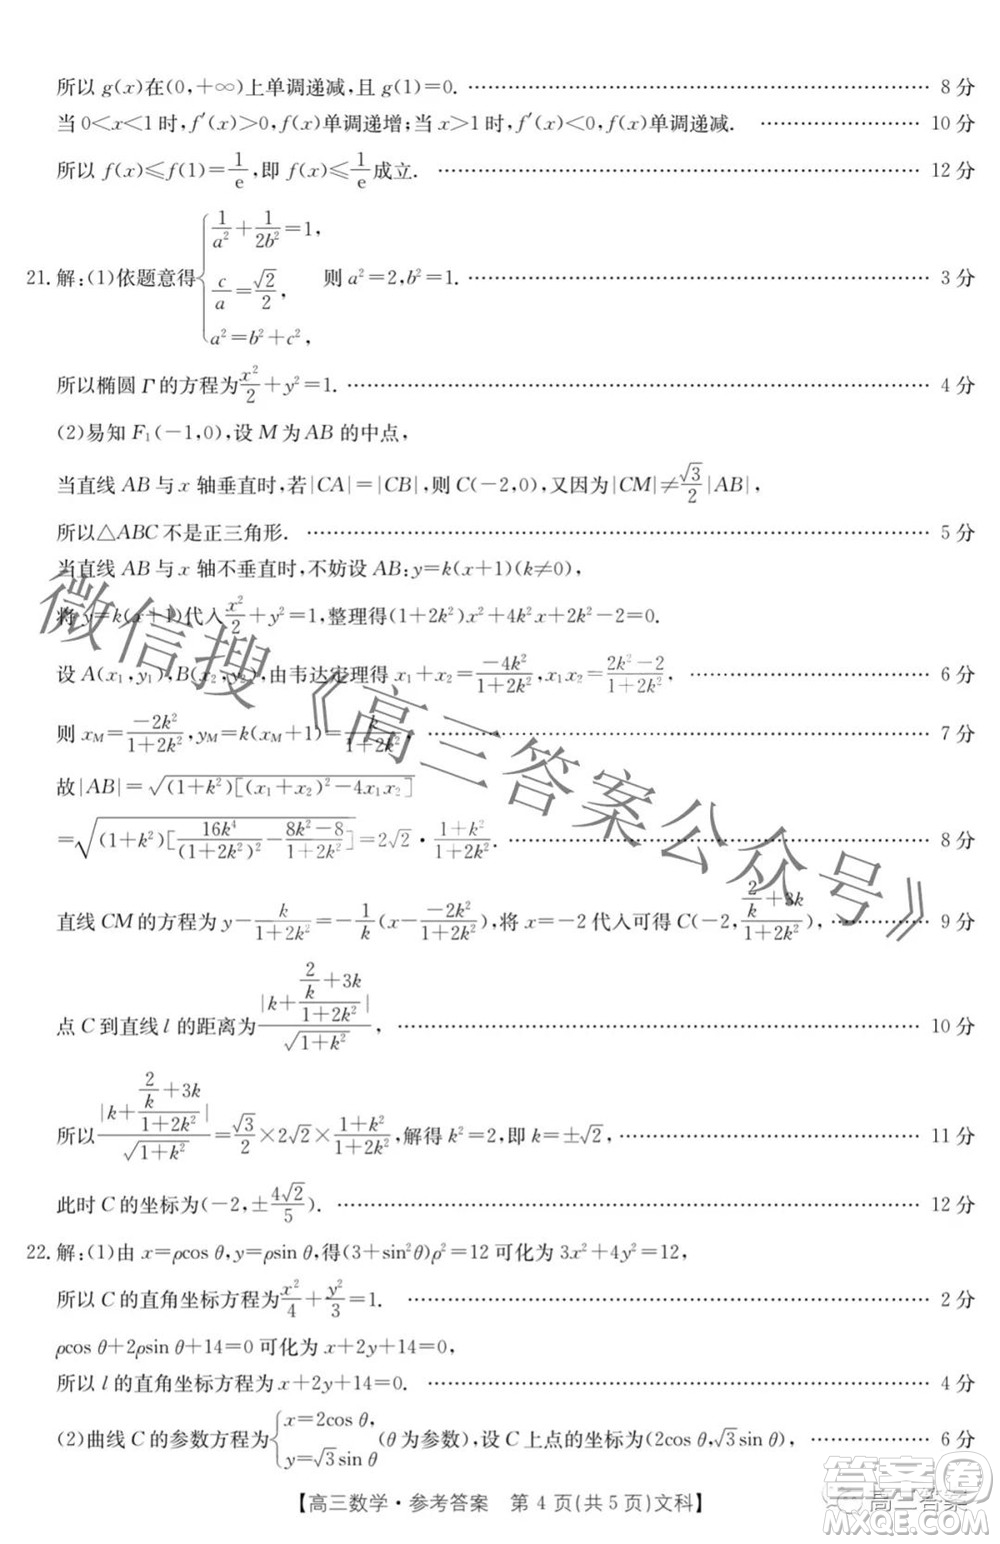 所以 g(x)在(0,+∞)上单调递减,且 g(1)=0. …… 8 分
当 0<x<1 时,f′(x)>0,f(x)单调递增;当 x>1 时,f′(x)<0,f(x)单调递减. …… 10 分
所以 f(x)≤f(1)=1/e,即 f(x)≤1/e成立. …… 12 分
21. 解:(1)依题意得{1/a²+1/2b²=1, c/a=√2/2, a²=b²+c², 则 a²=2,b²=1. …… 3 分
所以椭圆 Γ 的方程为x²/2+y²=1. …… 4 分
(2)易知 F₁(-1,0),设 M 为 AB 的中点,
当直线 AB 与 x 轴垂直时,若|CA|=|CB|,则 C(-2,0),又因为|CM|≠√3/2|AB|,
所以△ABC 不是正三角形. …… 5 分
当直线 AB 与 x 轴不垂直时,不妨设 AB:y=k(x+1)(k≠0),
将 y=k(x+1)代入x²/2+y²=1,整理得(1+2k²)x²+4k²x+2k²-2=0.
设 A(x₁,y₁),B(x₂,y₂),由韦达定理得 x₁+x₂=-4k²/(1+2k²),x₁x₂=(2k²-2)/(1+2k²), …… 6 分
则 x_M=-2k²/(1+2k²),y_M=k(x_M+1)=k/(1+2k²), …… 7 分
故|AB|=√((1+k²)[(x₁+x₂)²-4x₁x₂])
=√((1+k²)[16k⁴/(1+2k²)²-(8k²-8)/(1+2k²)])=2√2·(1+k²)/(1+2k²). …… 8 分
直线 CM 的方程为 y-k/(1+2k²)=-1/k(x--2k²/(1+2k²)),将 x=-2 代入可得 C(-2,(2/k+3k)/(1+2k²)), …… 9 分
点 C 到直线 l 的距离为|k+(2/k+3k)/(1+2k²)|/√(1+k²), …… 10 分
所以|k+(2/k+3k)/(1+2k²)|/√(1+k²)=√3/2×2√2×(1+k²)/(1+2k²),解得 k²=2,即 k=±√2, …… 11 分
此时 C 的坐标为(-2,±4√2/5). …… 12 分
22. 解:(1)由 x=ρcos θ,y=ρsin θ,得(3+sin²θ)ρ²=12 可化为 3x²+4y²=12,
所以 C 的直角坐标方程为x²/4+y²/3=1. …… 2 分
ρcos θ+2ρsin θ+14=0 可化为 x+2y+14=0,
所以 l 的直角坐标方程为 x+2y+14=0. …… 4 分
(2)曲线 C 的参数方程为{x=2cos θ, y=√3sin θ (θ 为参数),设 C 上点的坐标为(2cos θ,√3sin θ), …… 6 分
【高三数学·参考答案 第 4 页(共 5 页)文科】
微信搜《高三答案公众号》
高三答案
答案圈
MXQE.COM